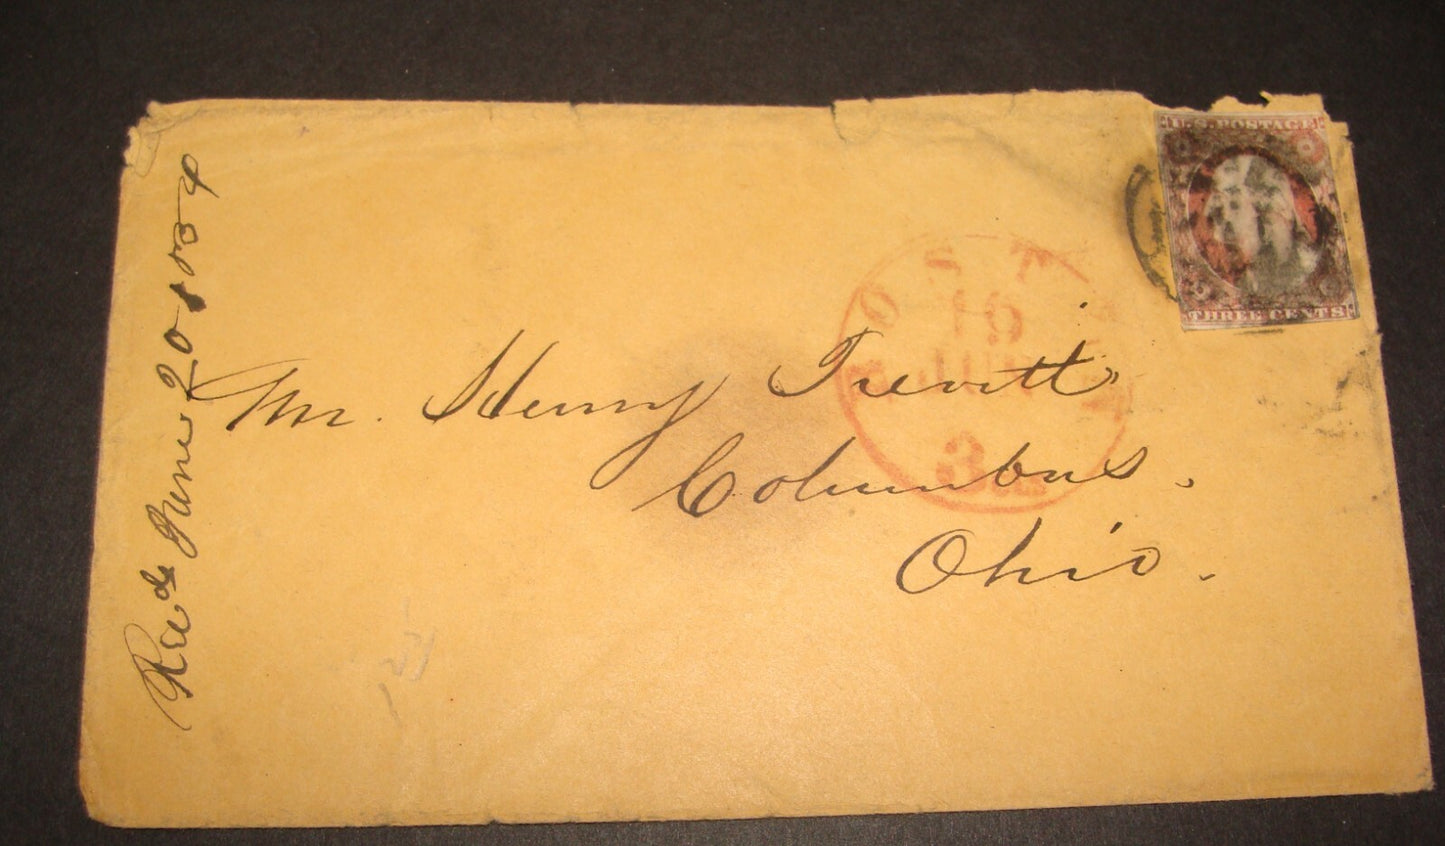 U.S. POSTAGE
THREE CENTS
Mr. Henry Trevitt,
Columbus,
Ohio.
Recd June 20 1854